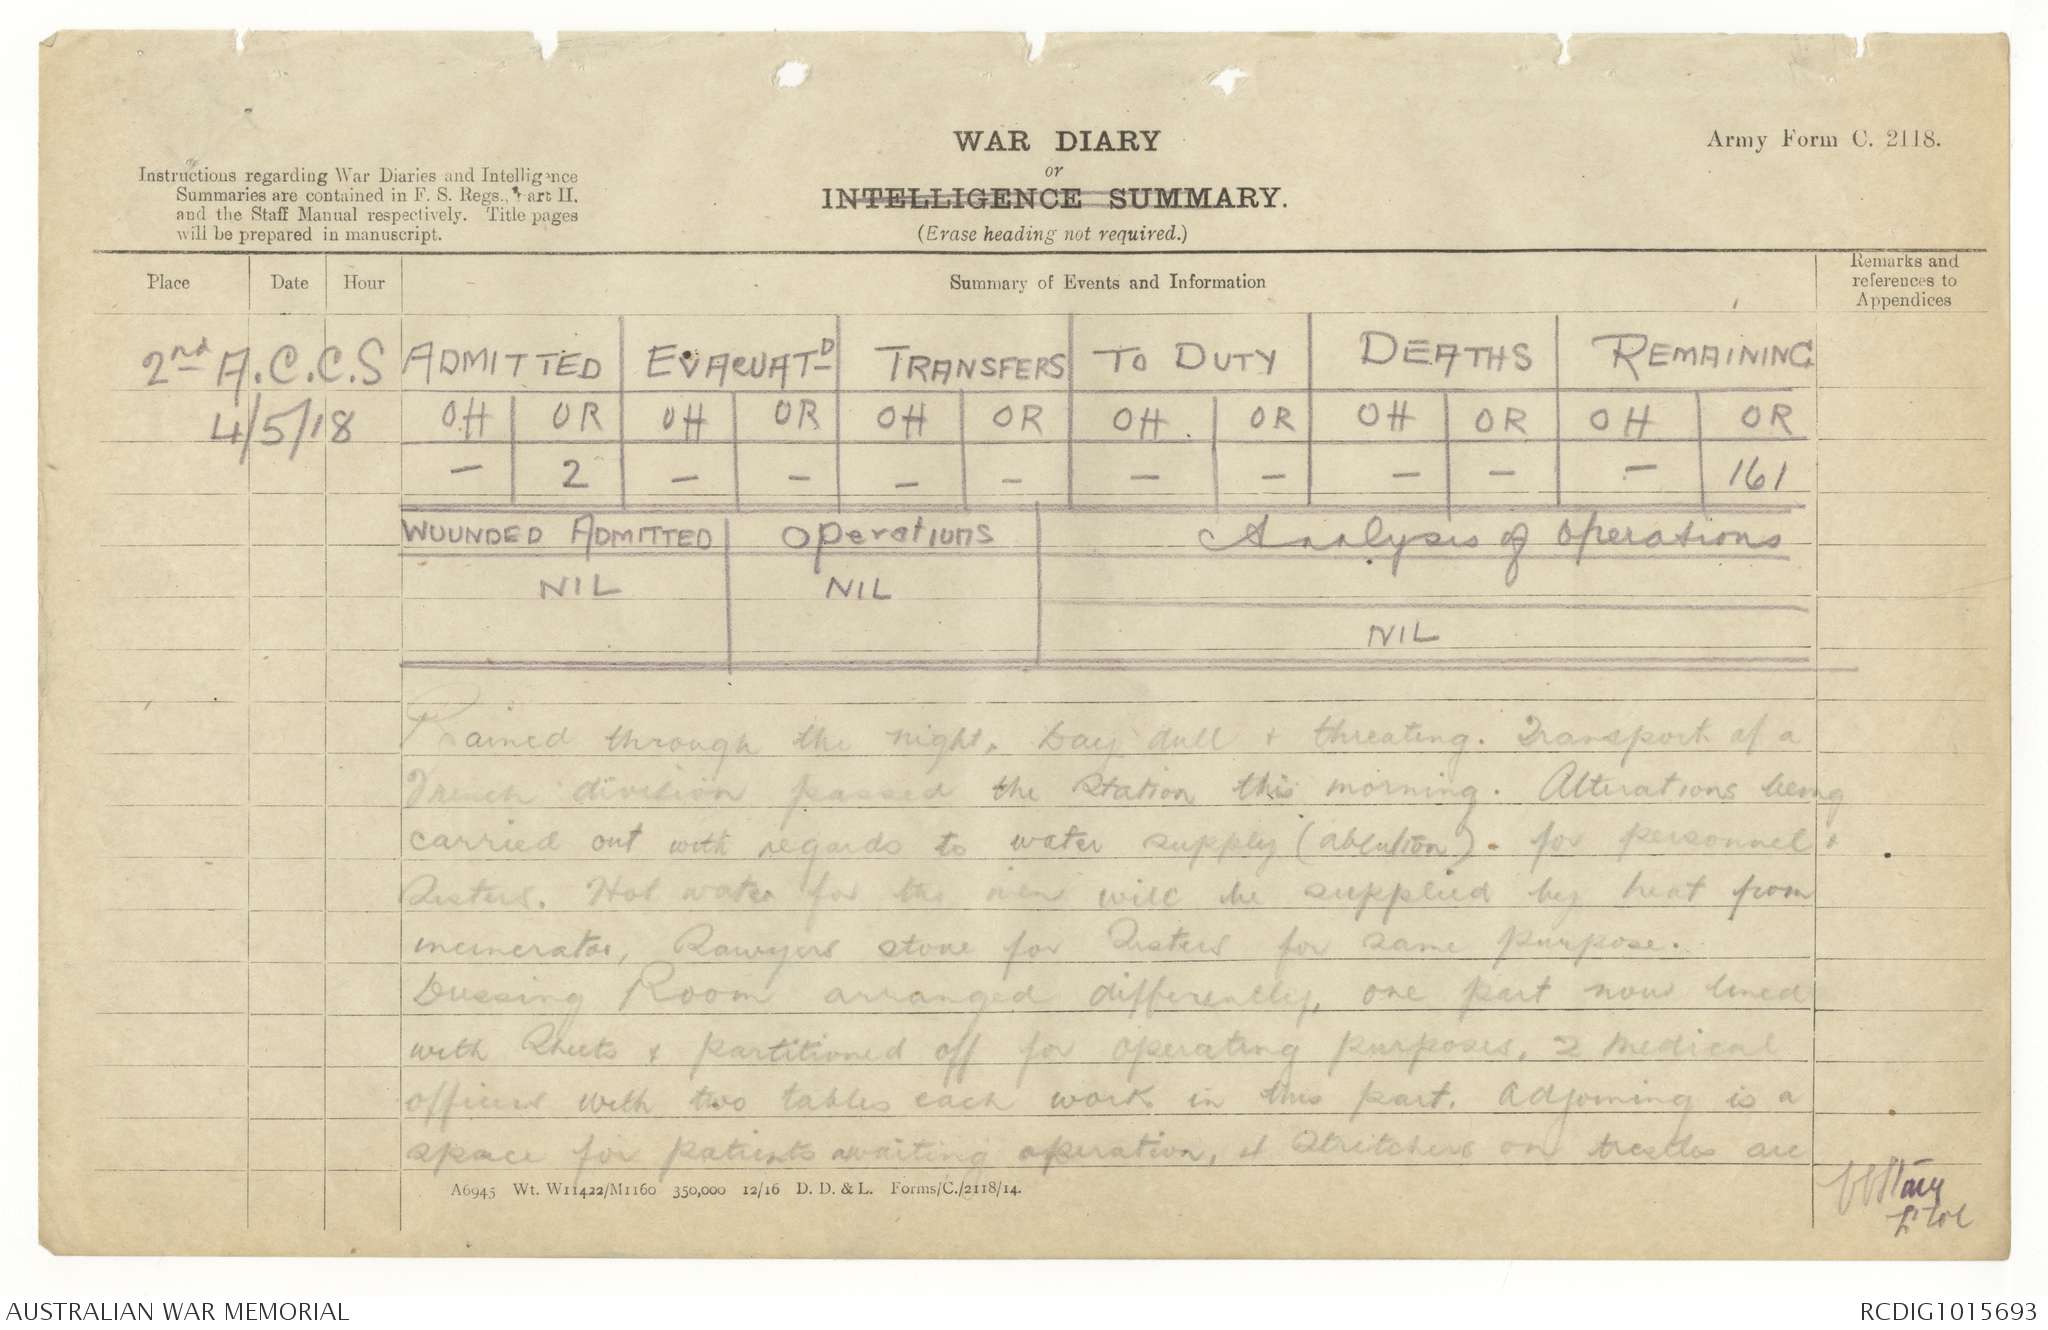 WAR DIARY
or
INTELLIGENCE SUMMARY.
(Erase heading not required.)
Army Form C. 2118.
Instructions regarding War Diaries and Intelligence
Summaries are contained in F. S. Regs., Part II.
and the Staff Manual respectively. Title pages
will be prepared in manuscript.
Place Date Hour Summary of Events and Information Remarks and references to Appendices
2nd A.C.C.S ADMITTED EVACUATD TRANSFERS TO DUTY DEATHS REMAINING
4/5/18 OH OR OH OR OH OR OH OR OH OR OH OR
— 2 — — — — — — — — — 161
WOUNDED ADMITTED Operations Analysis of Operations
NIL NIL
NIL
Rained through the night. Day dull & threating. Transport of a
French division passed the Station this morning. Alterations being
carried out with regards to water supply (ablution). for personnel &
Sisters. Hot water for the men will be supplied by heat from
incinerator, Sawyers stove for Sisters for same purpose.
Dressing Room arranged differently, one part now lined
with Sheets & partitioned off for operating purposes, 2 Medical
officers with two tables each work in this part. Adjoining is a
space for patients awaiting operation, & Stretchers on trestles are
A6945 Wt. W11422/M1160 350,000 12/16 D. D. & L. Forms/C./2118/14.
Lt Col
AUSTRALIAN WAR MEMORIAL
RCDIG1015693